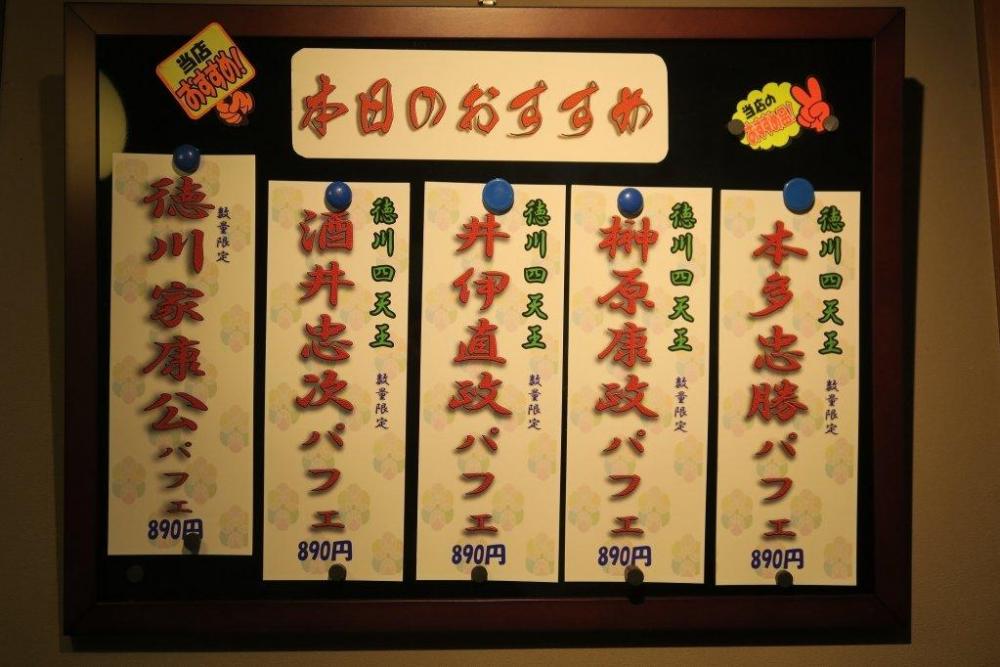 当店
おすすめ!
本日のおすすめ
当店の
おすすめ品!
徳川家康公パフェ
数量限定
890円
徳川四天王
酒井忠次パフェ
数量限定
890円
徳川四天王
井伊直政パフェ
数量限定
890円
徳川四天王
榊原康政パフェ
数量限定
890円
徳川四天王
本多忠勝パフェ
数量限定
890円